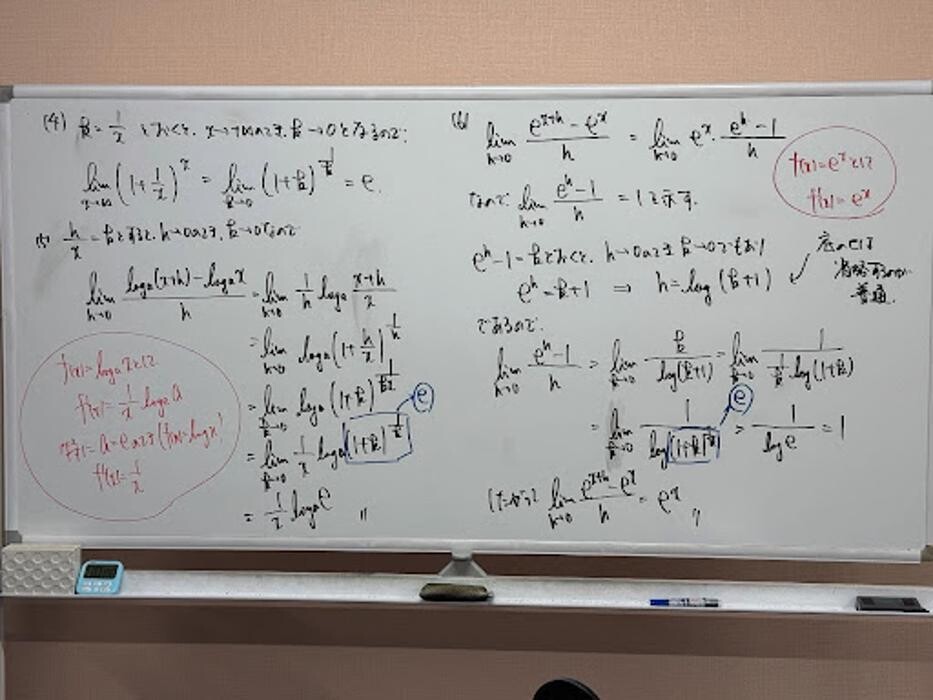 (4) k = 1/x とおくと、x→+∞のとき、k→0となるので
lim_{x→∞} (1 + 1/x)^x = lim_{k→0} (1+k)^{1/k} = e.
(5) h/x = kとすると、h→0のとき、k→0なので
lim_{h→0} (log_a(x+h) - log_a x)/h = lim_{h→0} 1/h log_a (x+h)/x
= lim_{h→0} log_a (1 + h/x)^{1/h}
= lim_{k→0} log_a (1+k)^{1/kx}
e
= lim_{k→0} 1/x log_a (1+k)^{1/k}
= 1/x log_a e 〃
f(x) = log_a x とは
f'(x) = 1/x log_a
a = e のとき (f(x) = log x)
f'(x) = 1/x
(6) lim_{h→0} (e^{x+h} - e^x)/h = lim_{h→0} e^x · (e^h - 1)/h
なので lim_{h→0} (e^h - 1)/h = 1 を示す.
f(x) = e^x
f'(x) = e^x
e^h - 1 = kとおくと、h→0のとき k→0であり
e^h = k+1 ⇒ h = log (k+1)
底のeは
省略するのが
普通.
であるので.
lim_{h→0} (e^h - 1)/h = lim_{k→0} k/log(k+1) = lim_{k→0} 1/(1/k · log(1+k))
e
= lim_{k→0} 1/log(1+k)^{1/k} = 1/log e = 1
したがって lim_{h→0} (e^{x+h} - e^x)/h = e^x 〃